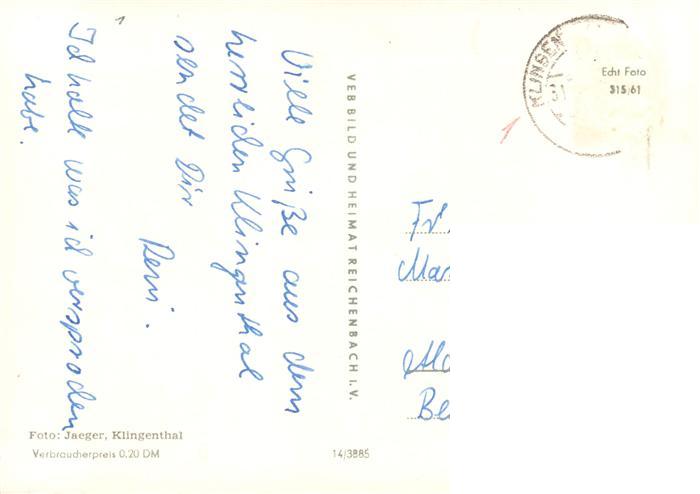 Viele Grüße aus dem
herrlichen Klingenthal
sendet Dir
Reni.
Ich halte was ich versprochen
habe.
Foto: Jaeger, Klingenthal
Verbraucherpreis 0,20 DM
14/3885
VEB BILD UND HEIMAT REICHENBACH I. V.
KLINGEN
31
Echt Foto
315/61
1
Fr.
Mar
Be